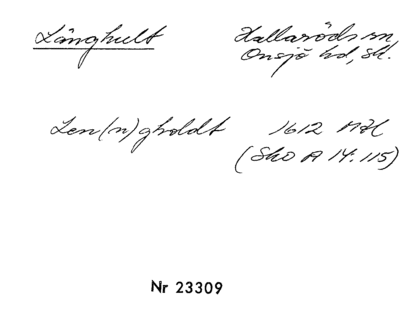 Långhult Hallaröds sn,
Onsjö hd, Sk.
Len(n)gholdt 1612 MH
(SkO A 14:115)
Nr 23309